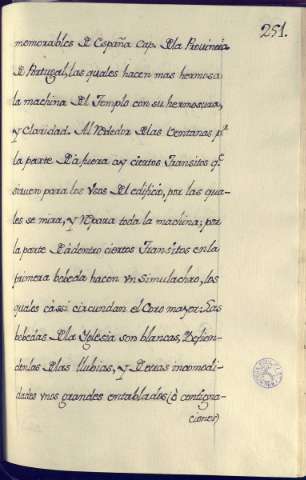 251.
memorables de España cap. de la Provincia
de Portugal, las quales hacen mas hermosa
la machina del Templo con su hermosura,
y claridad. Al rededor de las Ventanas pr
la parte de afuera ay ciertos transitos qe
sirven para los usos del edificio, por las qua-
les se mira, y repara toda la machina; por
la parte de adentro ciertos transitos en la
primera bobeda hacen un simulachro, los
quales cassi circundan el Coro mayor: Las
bobedas de la Yglesia son blancas, defien-
denlas de las llubias, y de otras incomodi-
dades unos grandes entablados (ò contigna-
ciones)